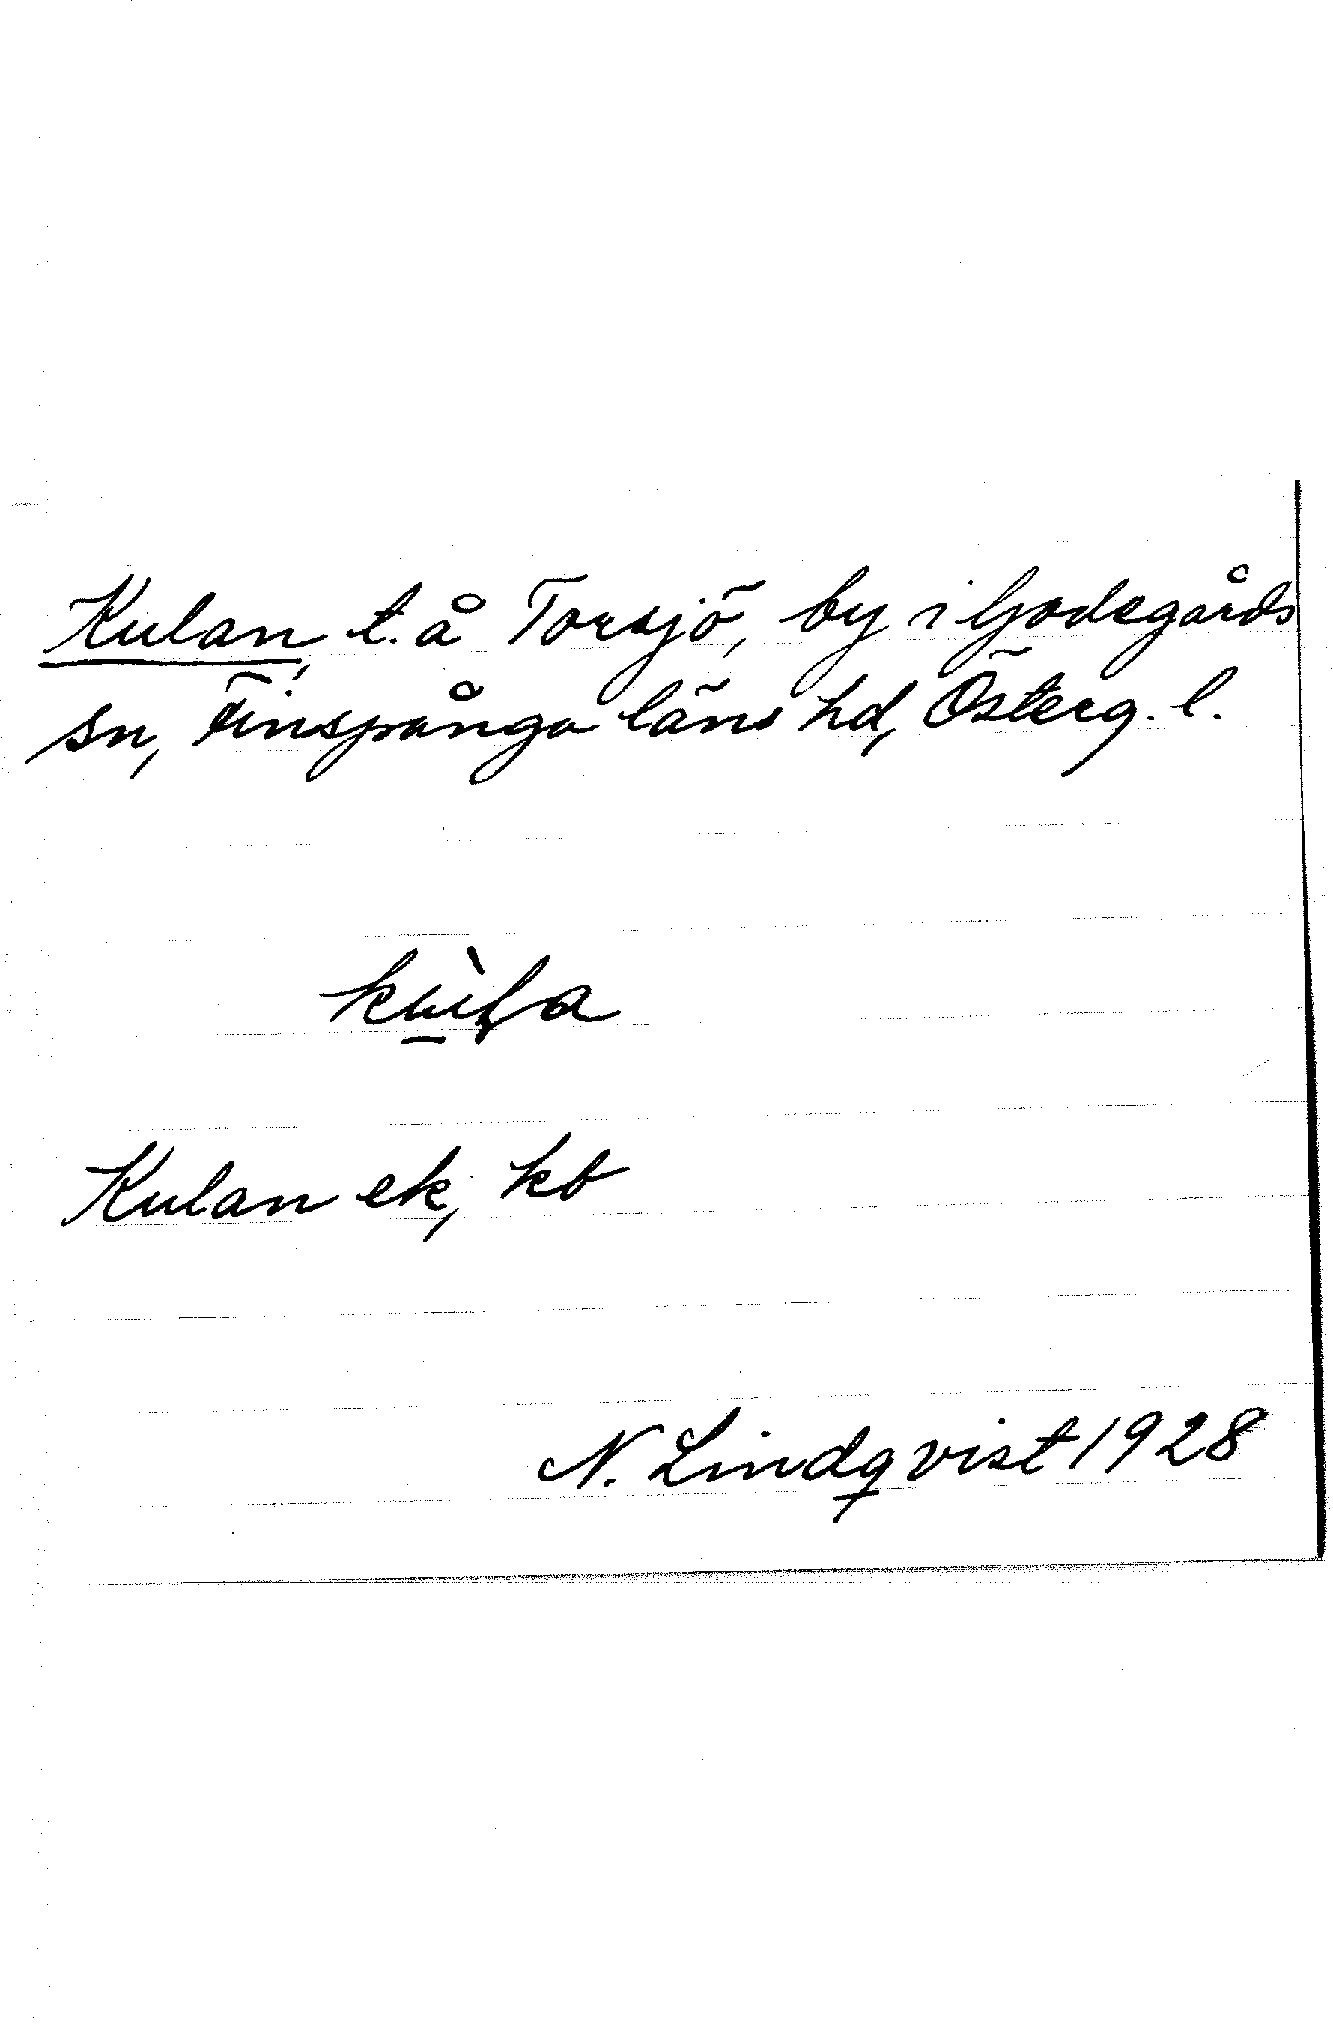 Kulan, t. å Torsjö, by i Godegårds
sn, Finspånga läns hd, Österg. l.
kùla
Kulan ek, kb
N. Lindqvist 1928